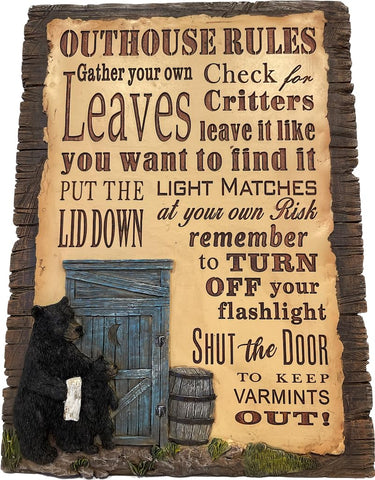 OUTHOUSE RULES
Gather your own
Leaves
Check for
Critters
leave it like
you want to find it
PUT THE
LID DOWN
LIGHT MATCHES
at your own Risk
remember
to TURN
OFF your
flashlight
SHUT the DOOR
TO KEEP
VARMINTS
OUT!